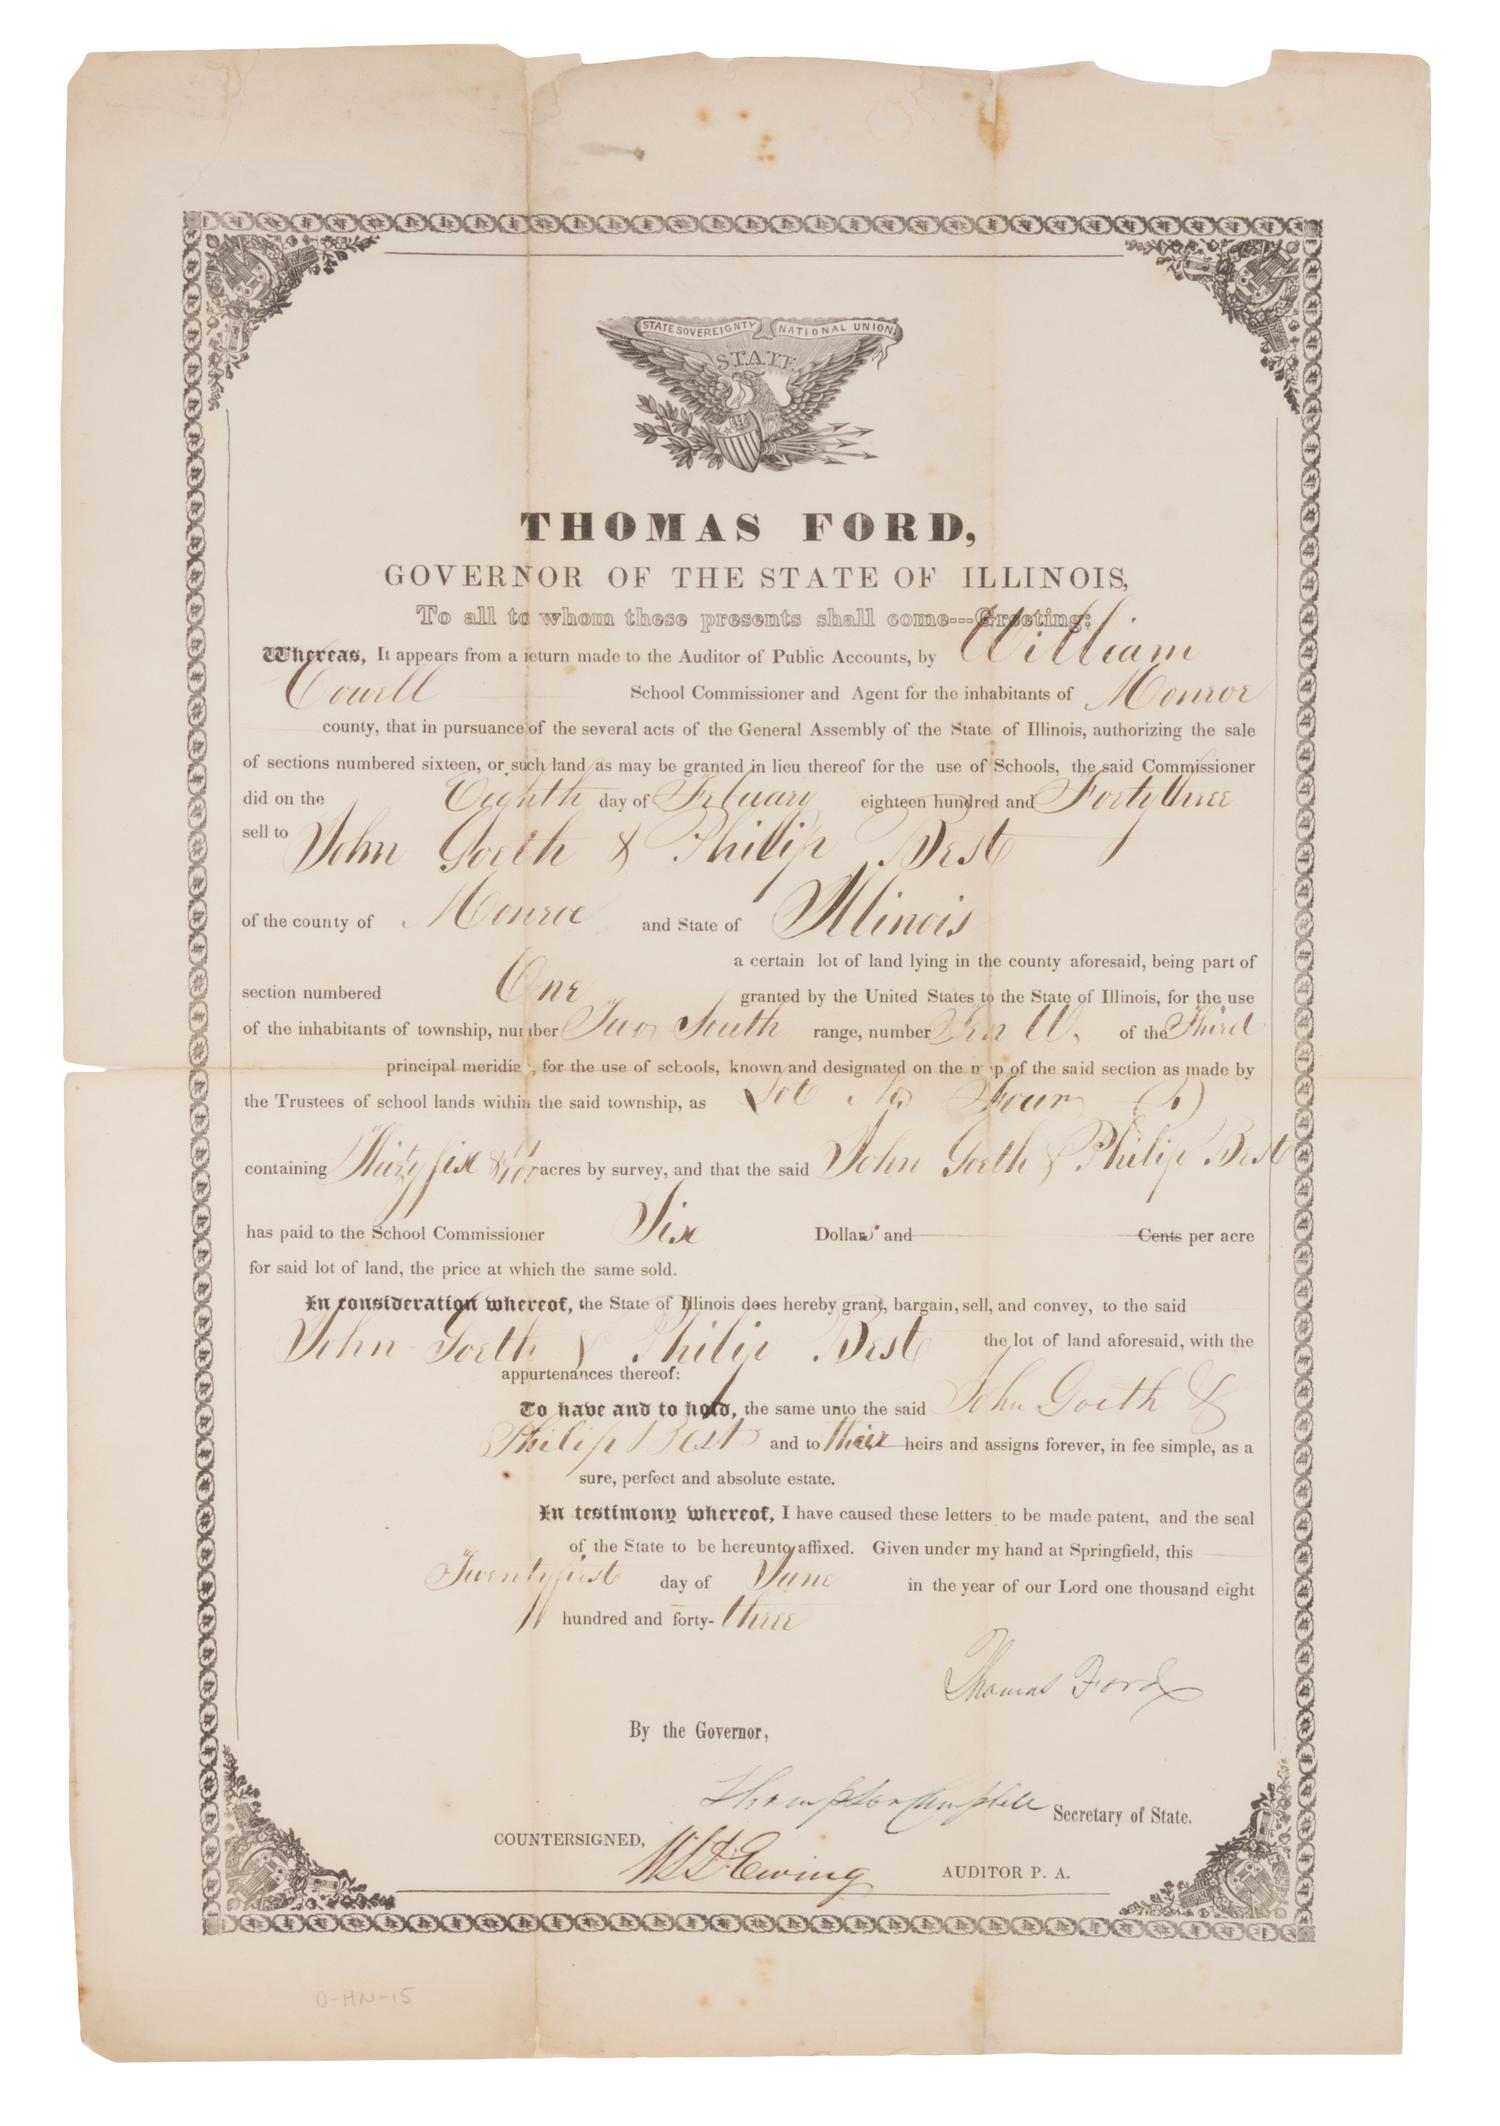 STATE SOVEREIGNTY NATIONAL UNION
STATE
THOMAS FORD,
GOVERNOR OF THE STATE OF ILLINOIS,
To all to whom these presents shall come---Greeting:
Whereas, It appears from a return made to the Auditor of Public Accounts, by William
Cowell School Commissioner and Agent for the inhabitants of Monroe
county, that in pursuance of the several acts of the General Assembly of the State of Illinois, authorizing the sale
of sections numbered sixteen, or such land as may be granted in lieu thereof for the use of Schools, the said Commissioner
did on the Eighth day of Febuary eighteen hundred and Forty three
sell to John Goeth & Philip Best
of the county of Monroe and State of Illinois
a certain lot of land lying in the county aforesaid, being part of
section numbered One granted by the United States to the State of Illinois, for the use
of the inhabitants of township, number Two South range, number Ten W. of the Third
principal meridian, for the use of schools, known and designated on the map of the said section as made by
the Trustees of school lands within the said township, as Lot No Four
containing Thirty six acres by survey, and that the said John Goeth & Philip Best
has paid to the School Commissioner Six Dollars and Cents per acre
for said lot of land, the price at which the same sold.
In consideration whereof, the State of Illinois does hereby grant, bargain, sell, and convey, to the said
John Goeth & Philip Best the lot of land aforesaid, with the
appurtenances thereof:
To have and to hold, the same unto the said John Goeth &
Philip Best and to their heirs and assigns forever, in fee simple, as a
sure, perfect and absolute estate.
In testimony whereof, I have caused these letters to be made patent, and the seal
of the State to be hereunto affixed. Given under my hand at Springfield, this
Twenty first day of June in the year of our Lord one thousand eight
hundred and forty-three
Thomas Ford
By the Governor,
Thompson Campbell Secretary of State.
COUNTERSIGNED, W L D Ewing AUDITOR P. A.
D-HN-15